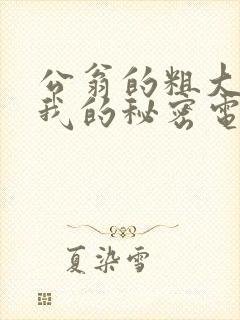 公翁的粗大
我的秘密电
夏染雪